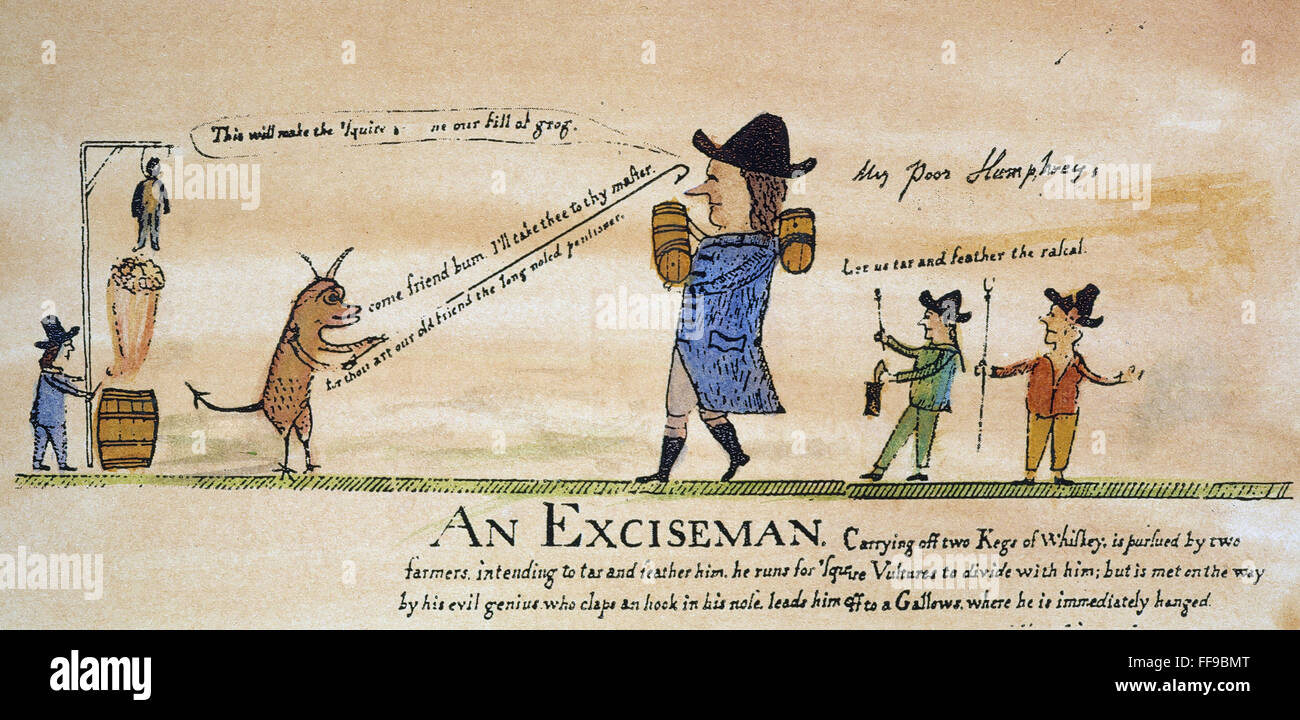 This will make the 'squire ne our fill of grog.
My Poor Humphrey,
come friend bum. I'll take thee to thy master.
for thou art our old friend the long nosed pentioner.
Let us tar and feather the rascal.
AN EXCISEMAN. Carrying off two Kegs of Whiskey; is pursued by two
farmers, intending to tar and feather him, he runs for 'Squire Vultures to divide with him; but is met on the way
by his evil genius who claps an hook in his nose, leads him off to a Gallows, where he is immediately hanged.
alamy
alamy stock photo
FF9BMT
www.alamy.com